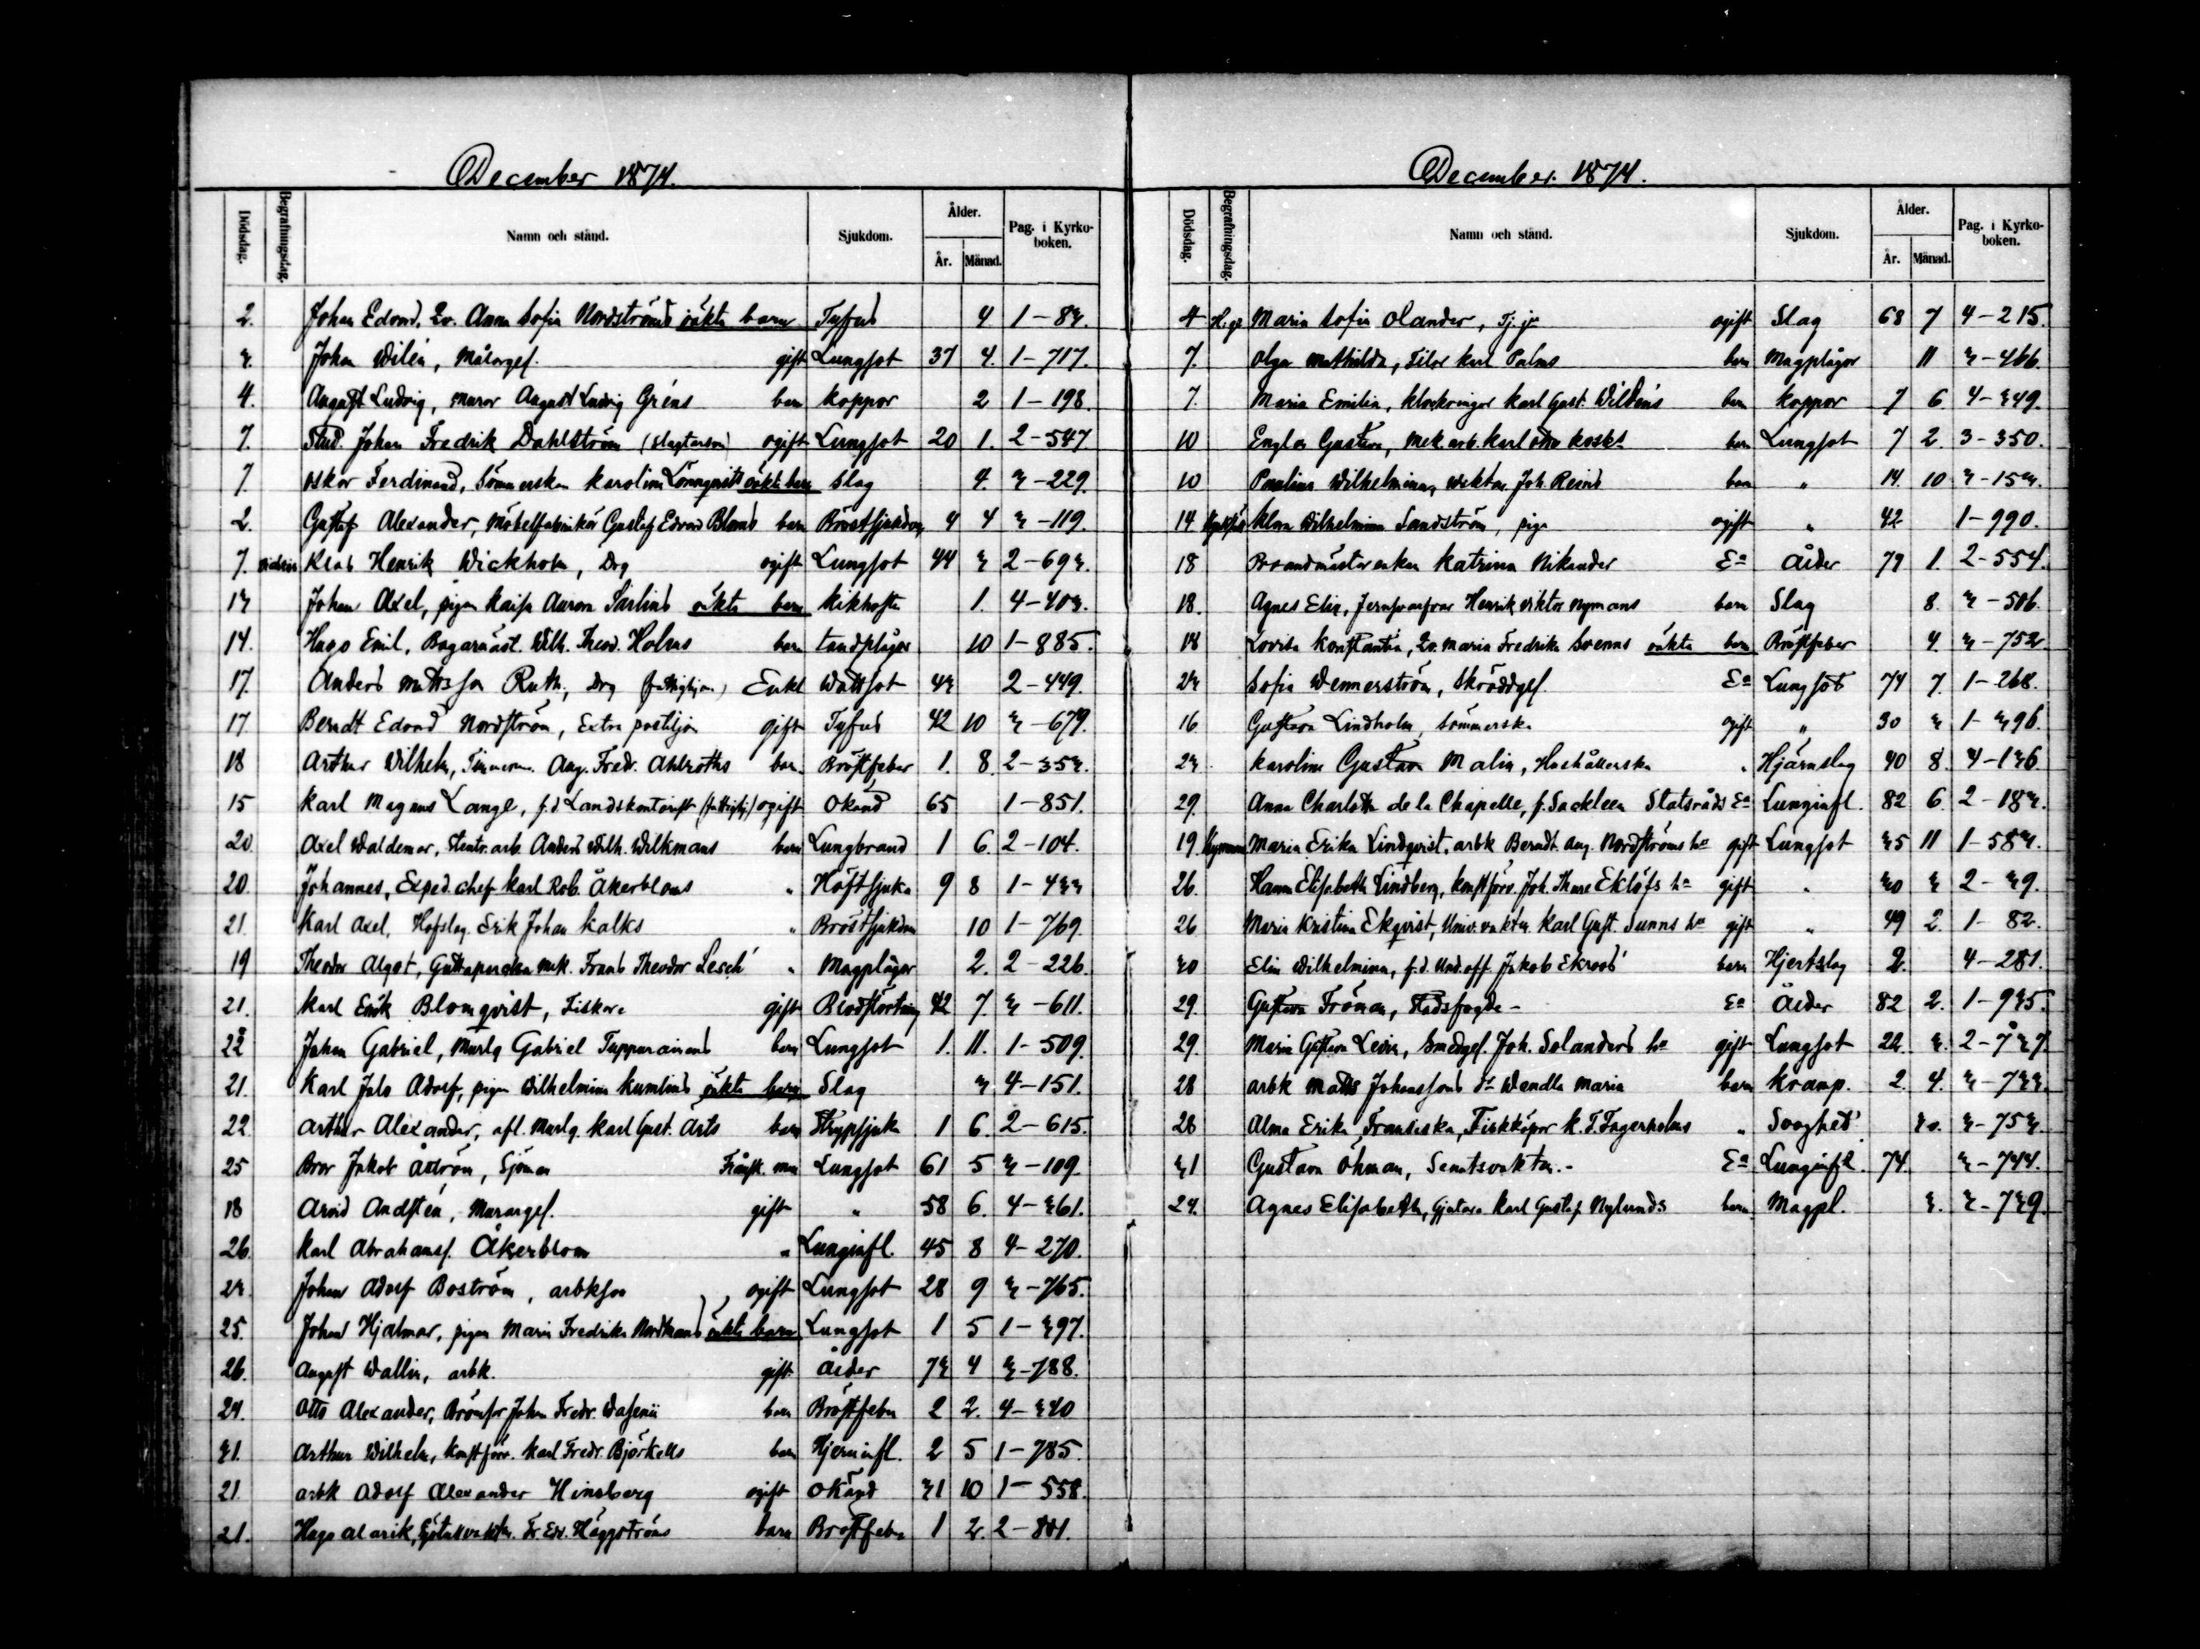 December 1874.
Dödsdag. Begrafningsdag. Namn och stånd. Sjukdom. Ålder. År. Månad. Pag. i Kyrkoboken.
2. Johan Edvard, Anna Sofia Nordströms oäkta barn Tyfus 4 1-83.
3. Johan Wilén, Målargef. gift Lungsot 37 4. 1-717.
4. August Ludvig, murar August Ludvig Gréns barn koppor 2 1-198.
7. Stud. Johan Fredrik Dahlström ogift Lungsot 20 1. 2-547.
7. Oskar Ferdinand, Sömmerskan Karolina Lönnqvists oäkta barn Slag 4. 3-229.
2. Gustaf Alexander, Möbelfabrikör Gustaf Edvard Bloms barn Bröstsjukdom 4 4 3-119.
7. Klas Henrik Wickholm, Drg ogift Lungsot 44 3 2-693.
13 Johan Axel, pigan Kaisa Aurora Sarlins oäkta barn kikhosta 1. 4-403.
14. Hugo Emil, Bagarmäst. Wilh. Theod. Holms barn tandplågor 10 1-885.
17. Anders Mattsson Ruth, Drg Enkl Wattsot 43 2-449.
17 Berndt Edvard Nordström, Extra postiljon gift Tyfus 42 10 3-679.
18 Arthur Wilhelm, Timmerm. Aug. Fredr. Ahlroths barn. Bröstfeber 1. 8. 2-353.
15 Karl Magnus Lange, f.d Landskontorist ogift okänd 65 1-851.
20. Axel Waldemar, arb. Anders Wilh. Wilkmans barn Lungbrand 1 6. 2-104.
20. Johannes, Exped. chef Karl Rob. Åkerbloms " Höftsjuka 9 8 1-433
21. Karl Axel, Hofslag. Erik Johan Kalks " Bröstsjukdom 10 1-769.
19 Theodor Algot, Frans Theodor Lesch' " Magplågor 2. 2-226.
21. Karl Erik Blomqvist, Fiskare gift Blodstörtning 42 7. 3-611.
22 Johan Gabriel, Murlg Gabriel Tuppurainens barn Lungsot 1. 11. 1-509.
21. Karl Adolf, pigan Wilhelmina Kumlins oäkta barn Slag 3 4-151.
22. Arthur Alexander, afl. Murlg. Karl Gust. Arts barn Strypsjuka 1 6. 2-615.
25 Bror Jakob Åström, Sjöman Frånsk. man Lungsot 61 5 3-109.
18 Arvid Andstén, Murargef. gift " 58 6. 4-361.
26. Karl Abrahamsf. Åkerblom " Lunginfl. 45 8 4-270.
23. Johan Adolf Boström, arbkson ogift Lungsot 28 9 3-765.
25. Johan Hjalmar, pigan Maria Fredrika Nordmans oäkta barn Lungsot 1 5 1-397.
26. August Wallin, arbk. gift Ålder 73 4 3-788.
24. Otto Alexander, Johan Fredr. barn Bröstfeber 2 2. 4-340
31. Arthur Wilhelm, Konstförv. Karl Fredr. Björkells barn Hjerninfl. 2 5 1-785.
21. arbk Adolf Alexander Hinsberg ogift okänd 31 10 1-558.
21. Hugo Alarik, Fr. Edv. Häggströms barn Bröstfeber 1 2. 2-801.
December 1874.
Dödsdag. Begrafningsdag. Namn och stånd. Sjukdom. Ålder. År. Månad. Pag. i Kyrkoboken.
4 Maria Sofia Olander, ogift Slag 68 7 4-215.
7. Olga Mathilda, Filar Karl Palms barn Magplågor 11 3-466.
7. Maria Emilia, klockringar Karl Gust. Wildéns barn koppor 7 6 4-349.
10 Gustava, Mek. arb. Karl Otto barn Lungsot 7 2. 3-350.
10 Paulina Wilhelmina, vaktm. Joh. barn " 14. 10 3-153.
14 Klara Wilhelmina Sandström, piga ogift " 42 1-990.
18 Brandmästarenkan Katrina Nikander Ea Ålder 79 1. 2-554.
18. Agnes Elin, Henrik Viktor Nymans barn Slag 8. 3-506.
18 Lovisa Konstantia, Maria Fredrika Svenns oäkta barn Bröstfeber 4. 3-752
23 Sofia Wennerström, Skräddgef. Ea Lungsot 74 7. 1-268.
16. Gustava Lindholm, Sömmerska ogift " 30 3 1-396.
23. Karolina Gustava Malin, Hushållerska " Hjärnslag 40 8. 4-136.
29. Anna Charlotta de la Chapelle, f. Sackleen Statsråds Ea Lunginfl. 82 6. 2-183.
19. Maria Erika Lindqvist, arbk Berndt Aug. Nordströms ha gift Lungsot 35 11 1-583.
26. Hanna Elisabeth Lindberg, konstförv. Joh. Thure Eklöfs ha gift " 30 3 2-39.
26. Maria Kristina Ekqvist, Univ. vaktm. Karl Gust. Sunns ha gift " 49 2. 1-82.
30 Elin Wilhelmina, f.d. Und.off. Jakob Ekroos' barn Hjertslag 2. 4-281.
29. Gustava Fröman, Stadsfogde- Ea Ålder 82 2. 1-935.
29. Maria Gustava Levin, Smedgef. Joh. Solanders ha gift Lungsot 22. 3. 2-737.
28 arbk Matts Johanssons dr Wendla Maria barn kramp. 2. 4. 3-733.
28 Alma Erika Fransiska, Fiskköpar K. F. Fagerholms " Svaghet 30. 3-753.
31 Gustava Öhman, Senatsvaktm.- Ea Lunginfl. 74. 3-744.
24. Agnes Elisabeth, Gjutare Karl Gustaf Nylunds barn Magpl. 3. 3-739.